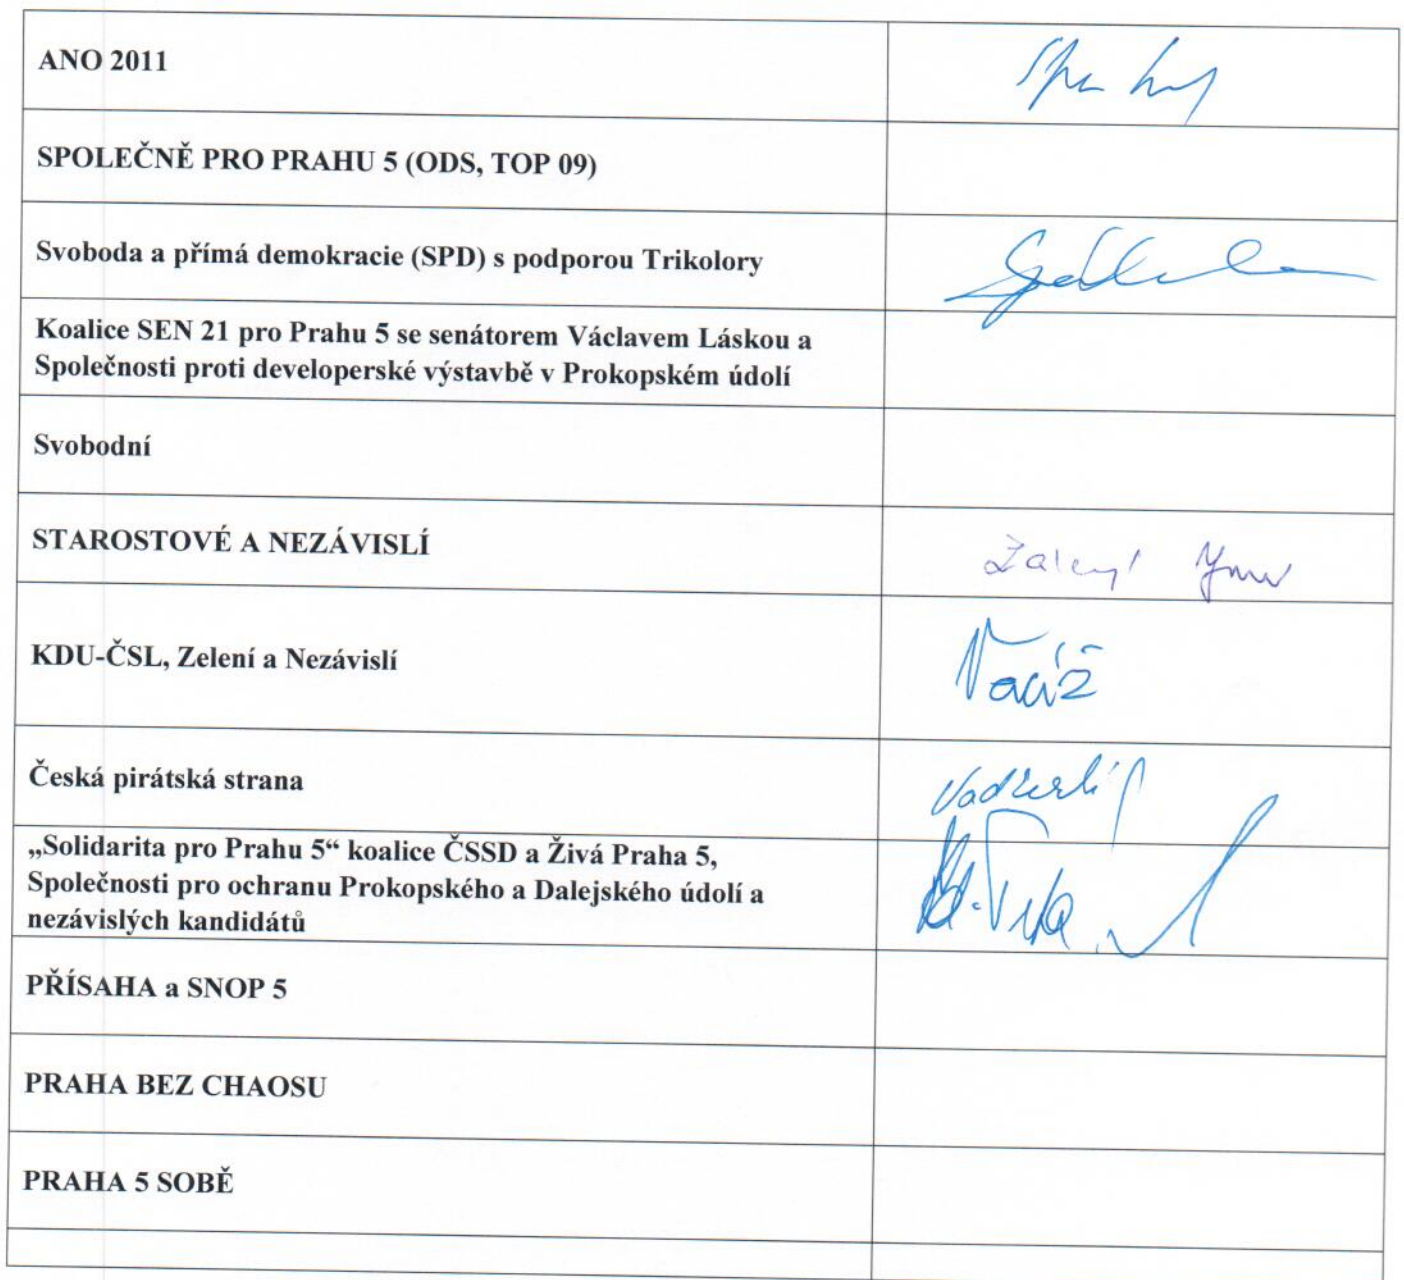 ANO 2011
SPOLEČNĚ PRO PRAHU 5 (ODS, TOP 09)
Svoboda a přímá demokracie (SPD) s podporou Trikolory
Koalice SEN 21 pro Prahu 5 se senátorem Václavem Láskou a
Společnosti proti developerské výstavbě v Prokopském údolí
Svobodní
STAROSTOVÉ A NEZÁVISLÍ
KDU-ČSL, Zelení a Nezávislí
Česká pirátská strana
„Solidarita pro Prahu 5“ koalice ČSSD a Živá Praha 5,
Společnosti pro ochranu Prokopského a Dalejského údolí a
nezávislých kandidátů
PŘÍSAHA a SNOP 5
PRAHA BEZ CHAOSU
PRAHA 5 SOBĚ